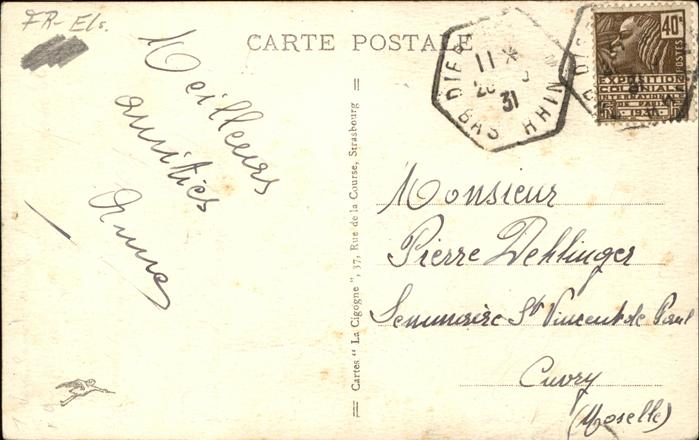 FR-Els.
CARTE POSTALE
Meilleurs
amitiés
Anne
Cartes " La Cigogne ", 37, Rue de la Course, Strasbourg
11 *
31
BAS RHIN
40c
POSTES
EXPOSITION
COLONIALE
INTERNATIONALE
Monsieur
Pierre Dehlinger
Seminaire St Vincent de Paul
Cuvry
(Moselle)